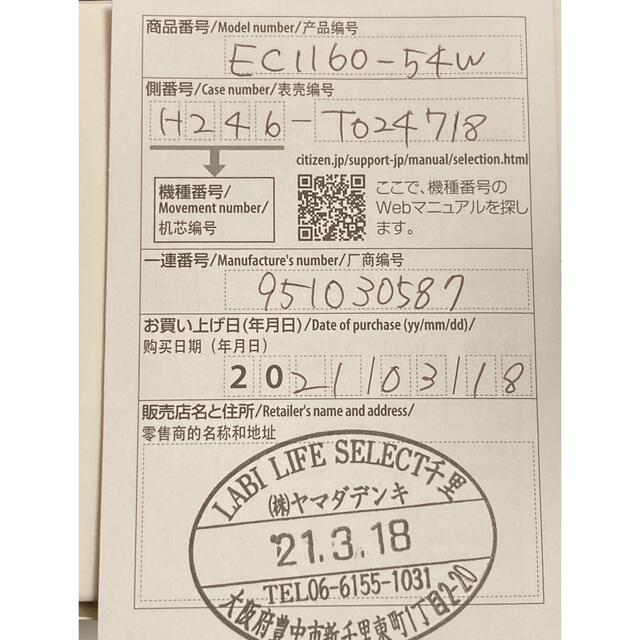 商品番号/Model number/产品编号
EC1160-54W
側番号/Case number/表壳编号
H246-T024718
citizen.jp/support-jp/manual/selection.html
機種番号/
Movement number/
机芯编号
ここで、機種番号の
Webマニュアルを探し
ます。
一連番号/Manufacture's number/厂商编号
951030587
お買い上げ日(年月日)/Date of purchase (yy/mm/dd)/
购买日期（年月日）
2021/03/18
販売店名と住所/Retailer's name and address/
零售商的名称和地址
LABI LIFE SELECT千里
(株)ヤマダデンキ
'21.3.18
TEL06-6155-1031
大阪府豊中市新千里東町1丁目2-20